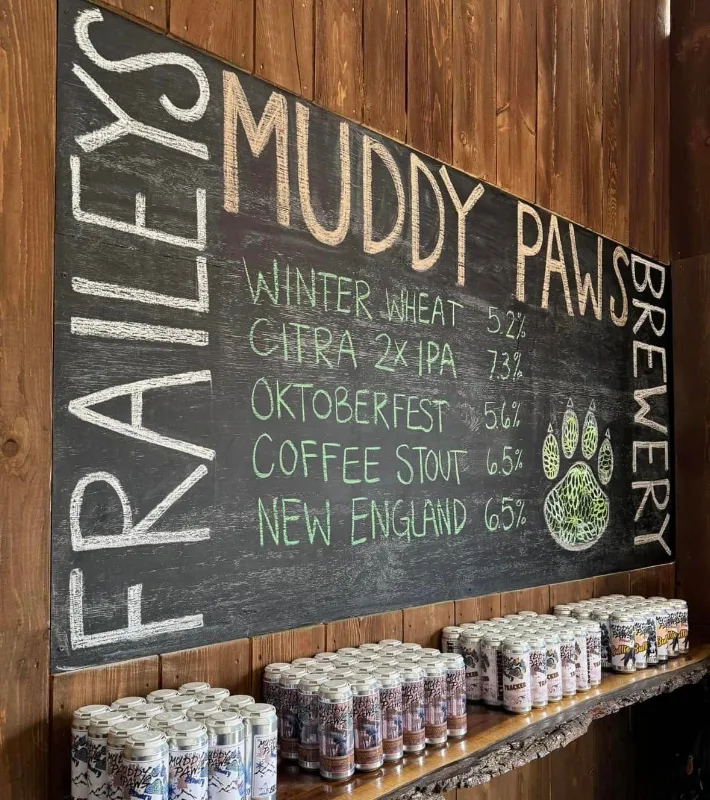 FRAILEYS
MUDDY PAWS
BREWERY
WINTER WHEAT 5.2%
CITRA 2X IPA 7.3%
OKTOBERFEST 5.6%
COFFEE STOUT 6.5%
NEW ENGLAND 6.5%
MUDDY PAWS
TRACKER